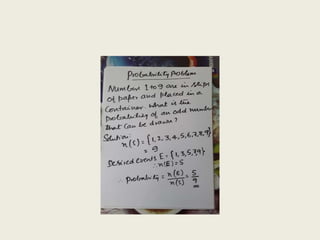 Probability Problem
Numbers 1 to 9 are in slips
of paper and placed in a
container. What is the
probability of an odd number
that can be drawn?
Solution:
n(S) = {1,2,3,4,5,6,7,8,9}
= 9
Desired events E = {1,3,5,7,9}
∴ n(E) = 5
∴ Probability = n(E)/n(S) = 5/9